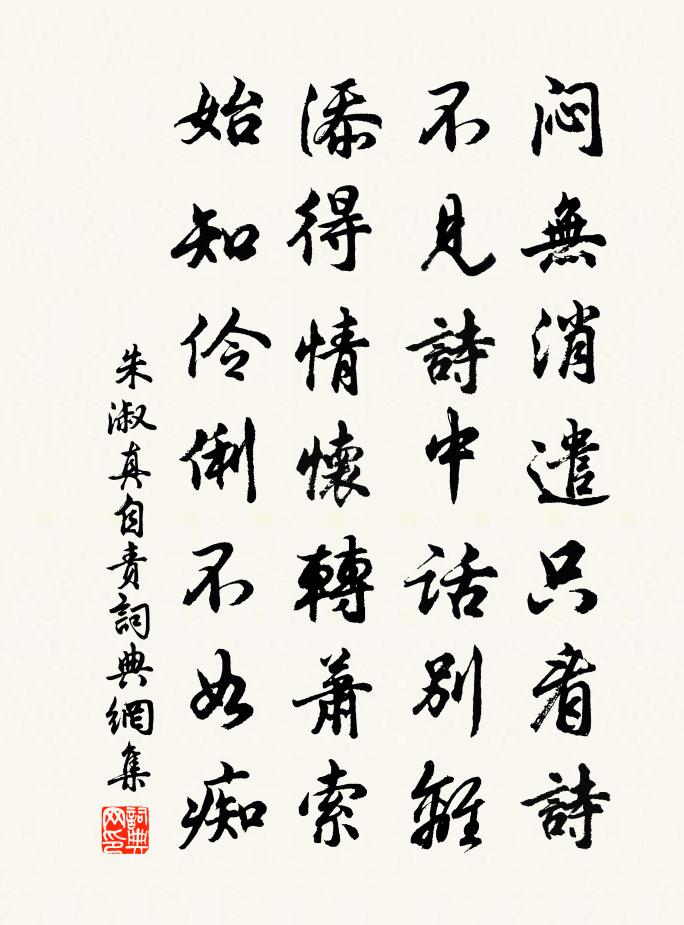 悶無消遣只看詩
不見詩中話別離
添得情懷轉蕭索
始知伶俐不如痴
朱淑真自責詞典網集
詞典网印